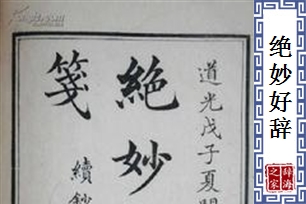 道光戊子夏開
絕妙
箋
續鈔
绝妙好辞
辞海
之家